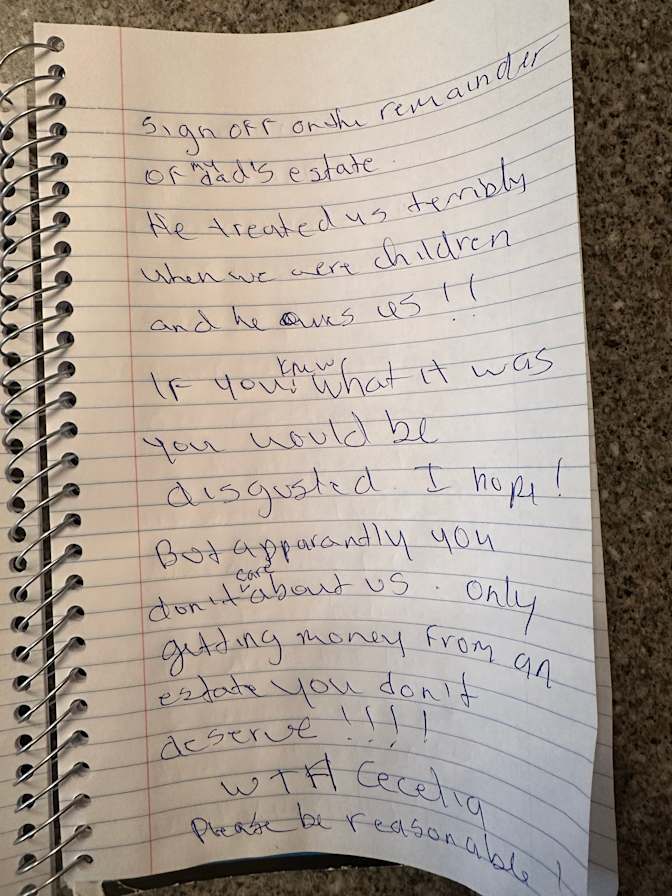 Sign off on the remainder
of my dad's estate.
He treated us terribly
when we were children
and he owes us!!
If you knew what it was
you would be
disgusted. I hope!
But apparantly you
don't care about us. Only
getting money from an
estate you don't
deserve!!!!
WTH Cecelia
Please be reasonable!